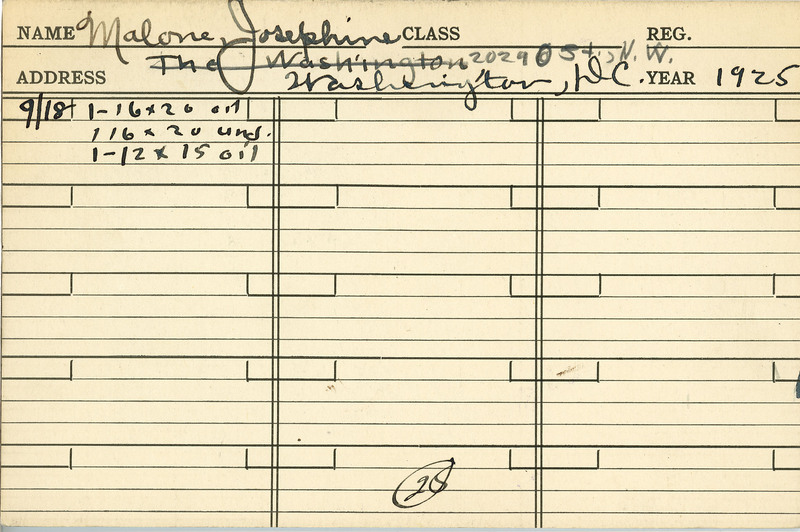 NAME Malone, Josephine CLASS REG.
The Washington 2029 O St., N.W.
ADDRESS Washington, D.C. YEAR 1925
9/18 1-16x20 oil
1 16 x 20 uns.
1-12 x 15 oil
28